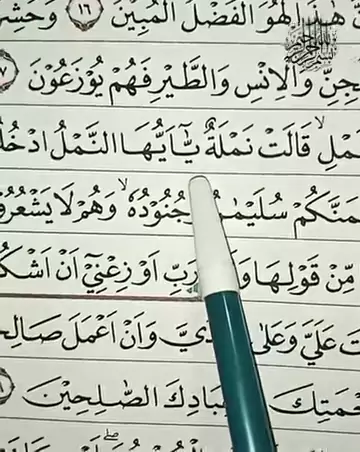 هٰذَا لَهُوَ الْفَضْلُ الْمُبِيْنُ ﴿١٦﴾ وَحُشِرَ
الْجِنِّ وَالْاِنْسِ وَالطَّيْرِ فَهُمْ يُوْزَعُوْنَ
قَالَتْ نَمْلَةٌ يّٰۤاَيُّهَا النَّمْلُ ادْخُلُ
مَنَّكُمْ جُنُوْدُهٗ ۙ وَهُمْ لَا يَشْعُرُوْ
مِّنْ قَوْلِهَا رَبِّ اَوْزِعْنِيْۤ اَنْ اَشْكُ
عَلَيَّ وَعَلٰى وَاَنْ اَعْمَلَ صَالِحً
الصّٰلِحِيْنَ